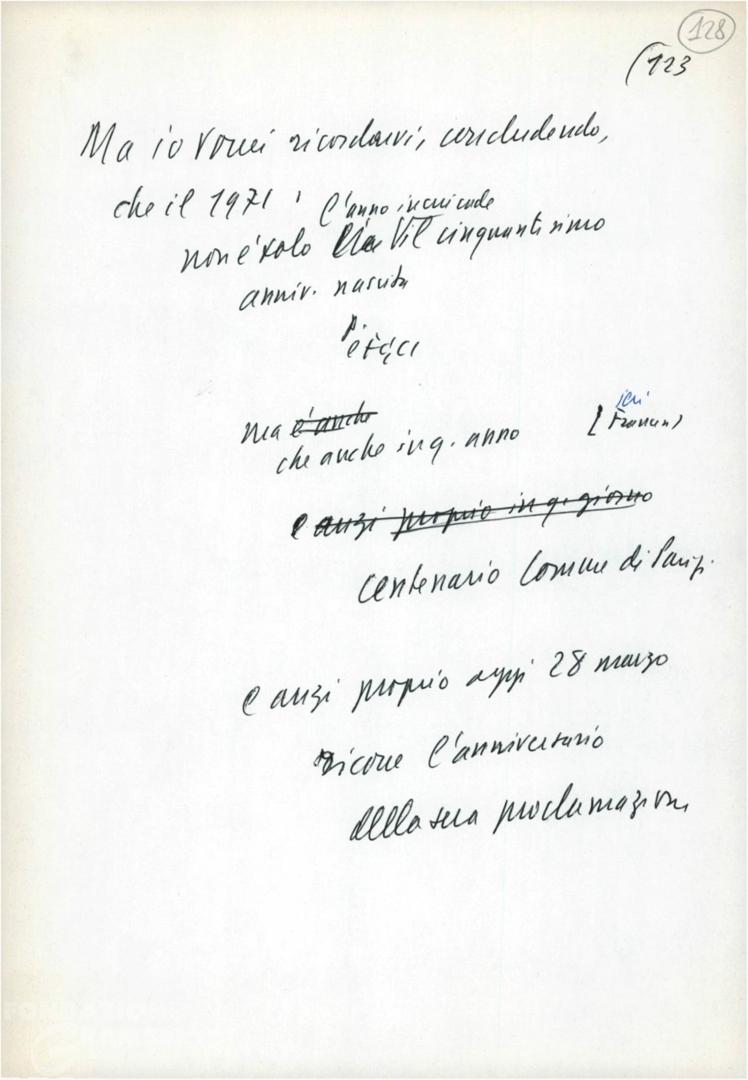 128
(123
Ma io vorrei ricordarvi, concludendo,
che il 1971
l'anno in cui cade
non è solo il cinquantesimo
anniv. nascita
P.C.I.
ma è anche
ieri
che anche in q. anno
e anzi proprio in q. giorno
centenario Comune di Parigi
e anzi proprio oggi 28 marzo
ricorre l'anniversario
della sua proclamazione